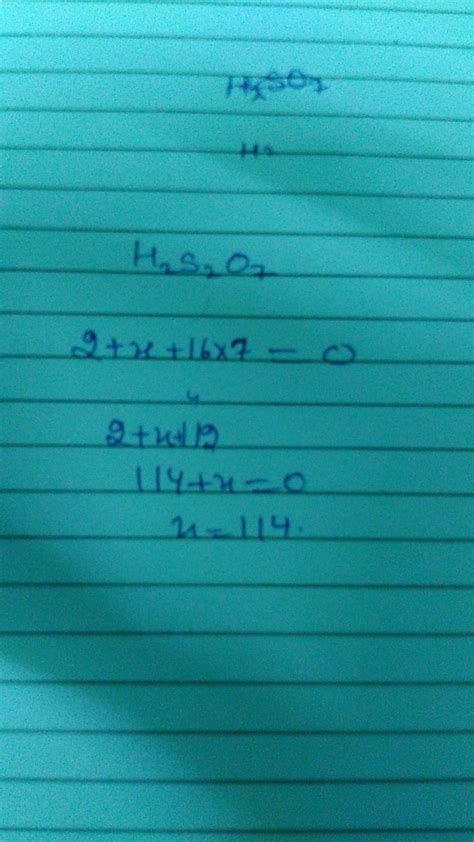 H2SO7
H2
H2S2O7
2+x+16x7 = 0
2+x+112
114+x=0
x=114.